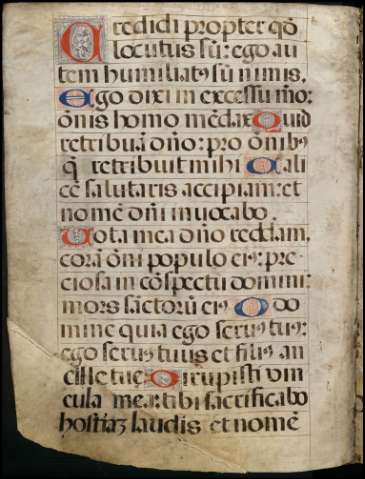 Credidi propter qđ
locutus sū: ego au
tem humiliat9 sū nimis.
Ego dixi in excessu mō:
ōnis homo mēdax Quid
retribuā dn̄o: pro ōnib9
q̄ retribuit mihi Cali
cē salutaris accipiam: et
nomē dn̄i inuocabo.
Uota mea dn̄o reddam,
corā ōni populo ei9: pre
ciosa in cōspectu domini:
mors sāctorū ei9 O do
mine quia ego seru9 tu9:
ego seru9 tuus et fili9 an
cille tue Dirupisti vin
cula mea: tibi sacrificabo
hostiaꝫ laudis et nomē